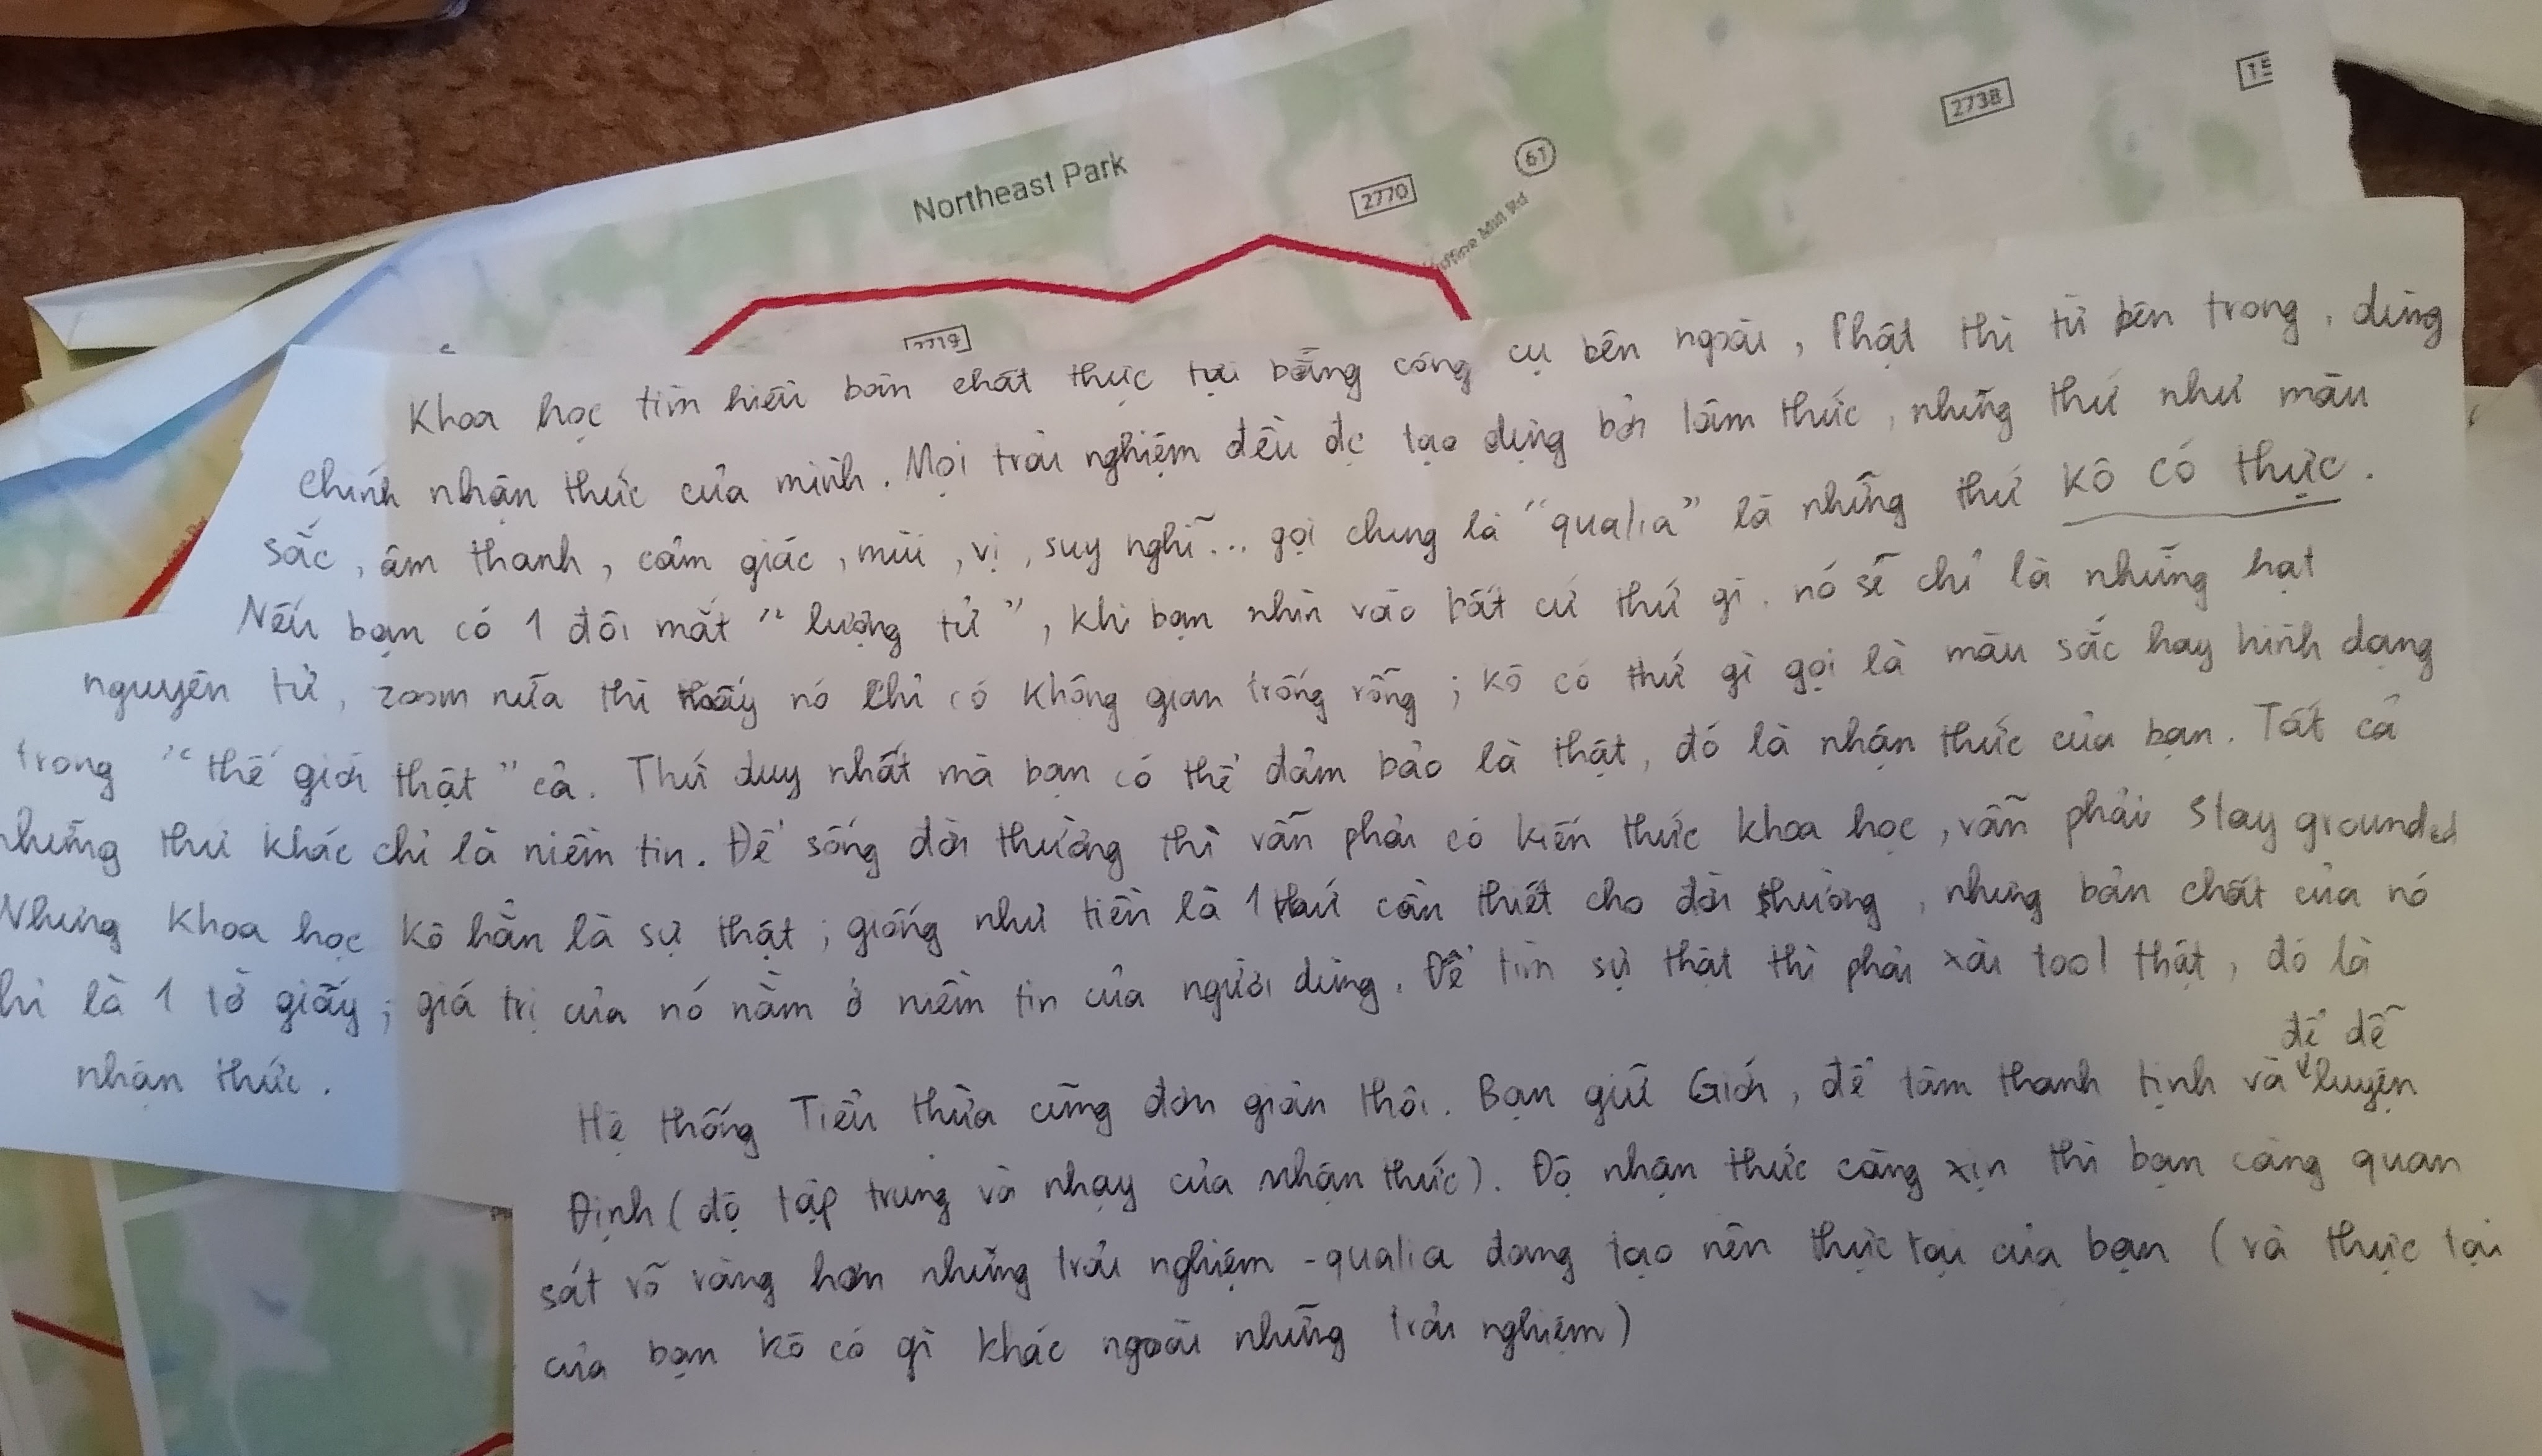 2738
15
61
Northeast Park
2770
Huffine Mill Rd
2719
Khoa học tìm hiểu bản chất thực tại bằng công cụ bên ngoài, Phật thì từ bên trong, dùng
chính nhận thức của mình. Mọi trải nghiệm đều đc tạo dựng bởi tâm thức, những thứ như màu
sắc, âm thanh, cảm giác, mùi, vị, suy nghĩ... gọi chung là "qualia" là những thứ kô có thực.
Nếu bạn có 1 đôi mắt "lượng tử", khi bạn nhìn vào bất cứ thứ gì, nó sẽ chỉ là những hạt
nguyên tử, zoom nữa thì thấy nó chỉ có không gian trống rỗng; kô có thứ gì gọi là màu sắc hay hình dạng
trong "thế giới thật" cả. Thứ duy nhất mà bạn có thể đảm bảo là thật, đó là nhận thức của bạn. Tất cả
những thứ khác chỉ là niềm tin. Để sống đời thường thì vẫn phải có kiến thức khoa học, vẫn phải stay grounded
Nhưng khoa học kô hẳn là sự thật; giống như tiền là 1 thứ cần thiết cho đời thường, nhưng bản chất của nó
hỉ là 1 tờ giấy; giá trị của nó nằm ở niềm tin của người dùng. Để tìm sự thật thì phải xài tool thật, đó là
nhận thức.
để dễ
Hệ thống Tiểu thừa cũng đơn giản thôi. Bạn giữ Giới, để tâm thanh tịnh và luyện
Định (độ tập trung và nhạy của nhận thức). Độ nhận thức càng xịn thì bạn càng quan
sát rõ ràng hơn những trải nghiệm - qualia đang tạo nên thực tại của bạn (và thực tại
của bạn kô có gì khác ngoài những trải nghiệm)